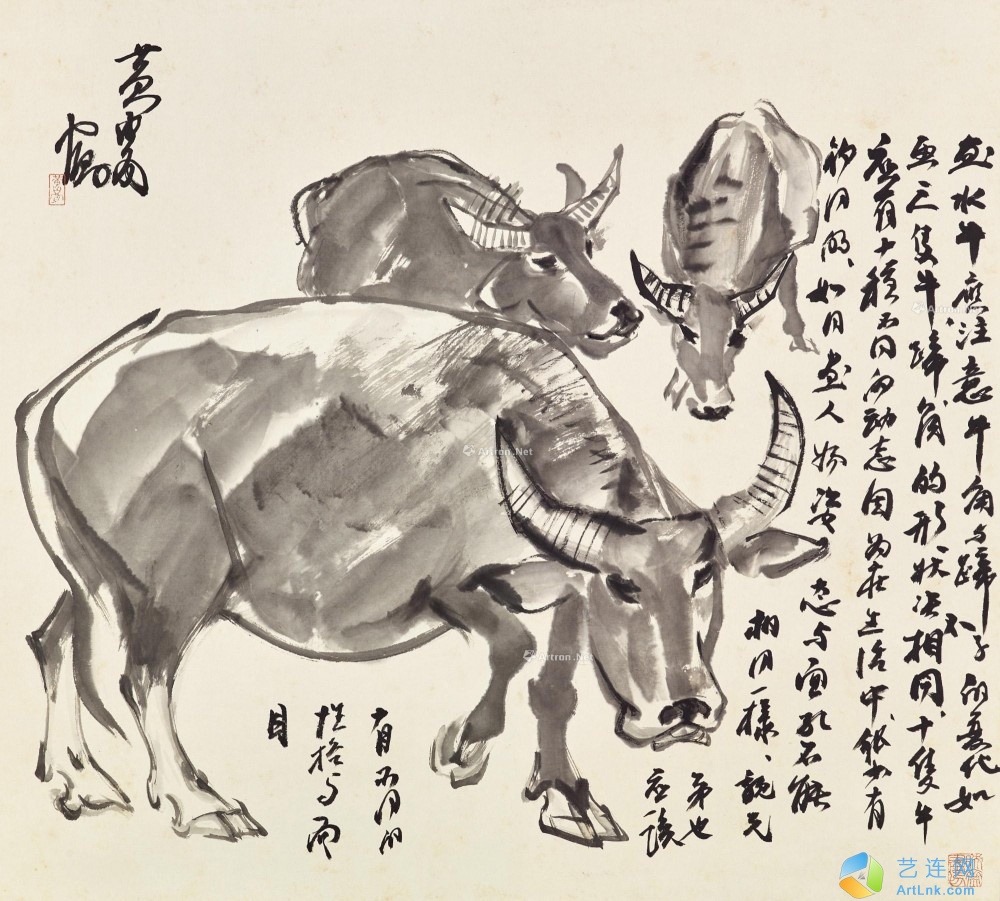 画水牛應注意牛角与蹄子的变化如
画三隻牛、蹄角的形状决不相同、十隻牛
应有十種不同的动态因为在生活中、很少有
相同的、如同画人物姿态与面孔不能
相同一樣、親兄
弟也
应該
有不同的
性格与面
目
黄胄
Artron.Net
Artron.Net
Artron.Net
Artron.Net
艺连网
ArtLnk.com